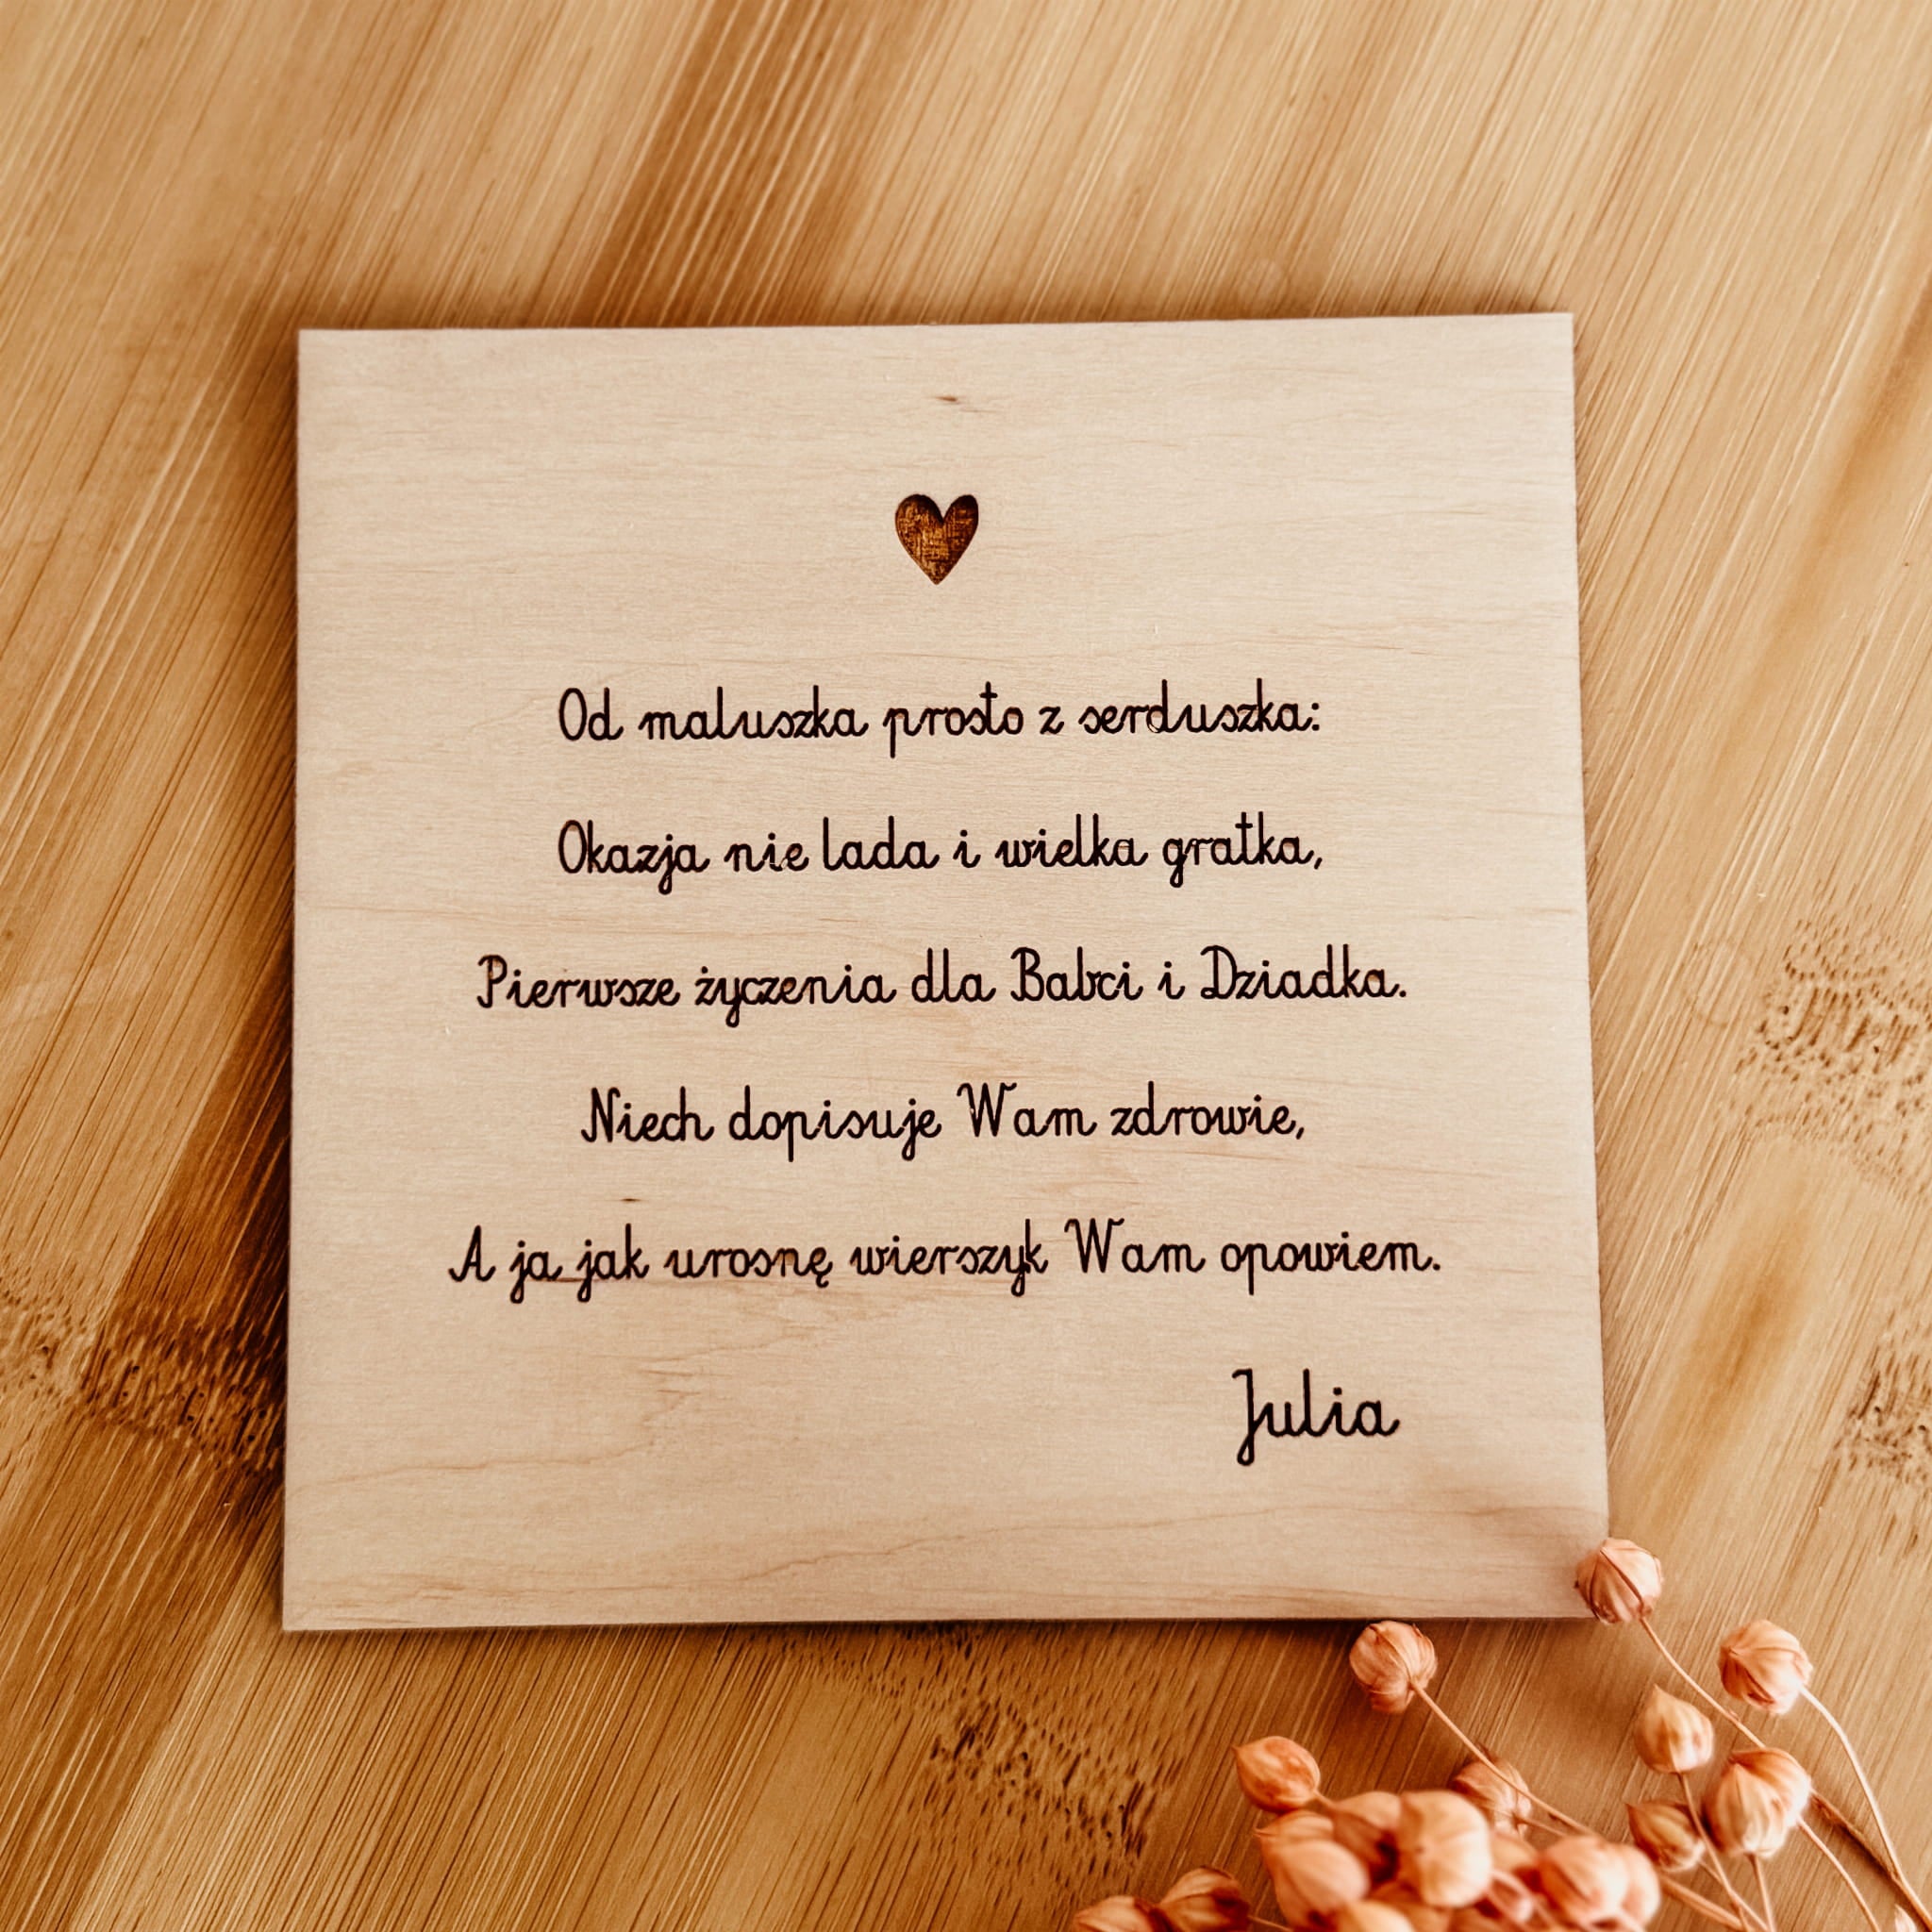 Od maluszka prosto z serduszka:
Okazja nie lada i wielka gratka,
Pierwsze życzenia dla Babci i Dziadka.
Niech dopisuje Wam zdrowie,
A ja jak urosnę wierszyk Wam opowiem.
Julia